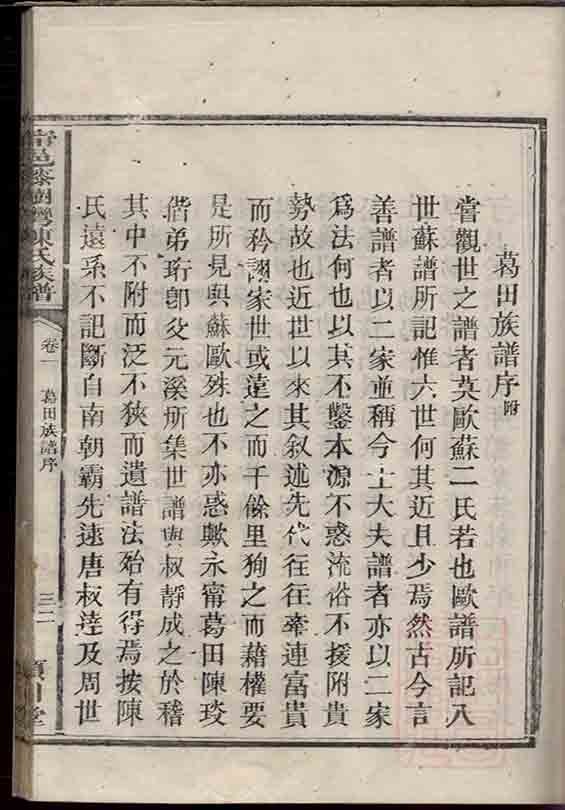 葛田族譜序附
嘗觀世之譜者莫歐蘇二氏若也歐譜所記八
世蘇譜所記惟六世何其近且少焉然古今言
善譜者以二家並稱今士大夫譜者亦以二家
爲法何也以其不鑿本源不惑流俗不援附貴
勢故也近世以來其叙述先代往往牽連富貴
而矜詡家世或遠之而千餘里狥之而藉權要
是所見與蘇歐殊也不亦惑歟永甯葛田陳琰
偕弟珩卽爻元溪所集世譜與叔靜成之於稽
其中不附而泛不狹而遺譜法殆有得焉按陳
氏遠系不記斷自南朝霸先逮唐叔達及周世
甯邑漆樹灣陳氏族譜
卷一
葛田族譜序
三二
潁川堂